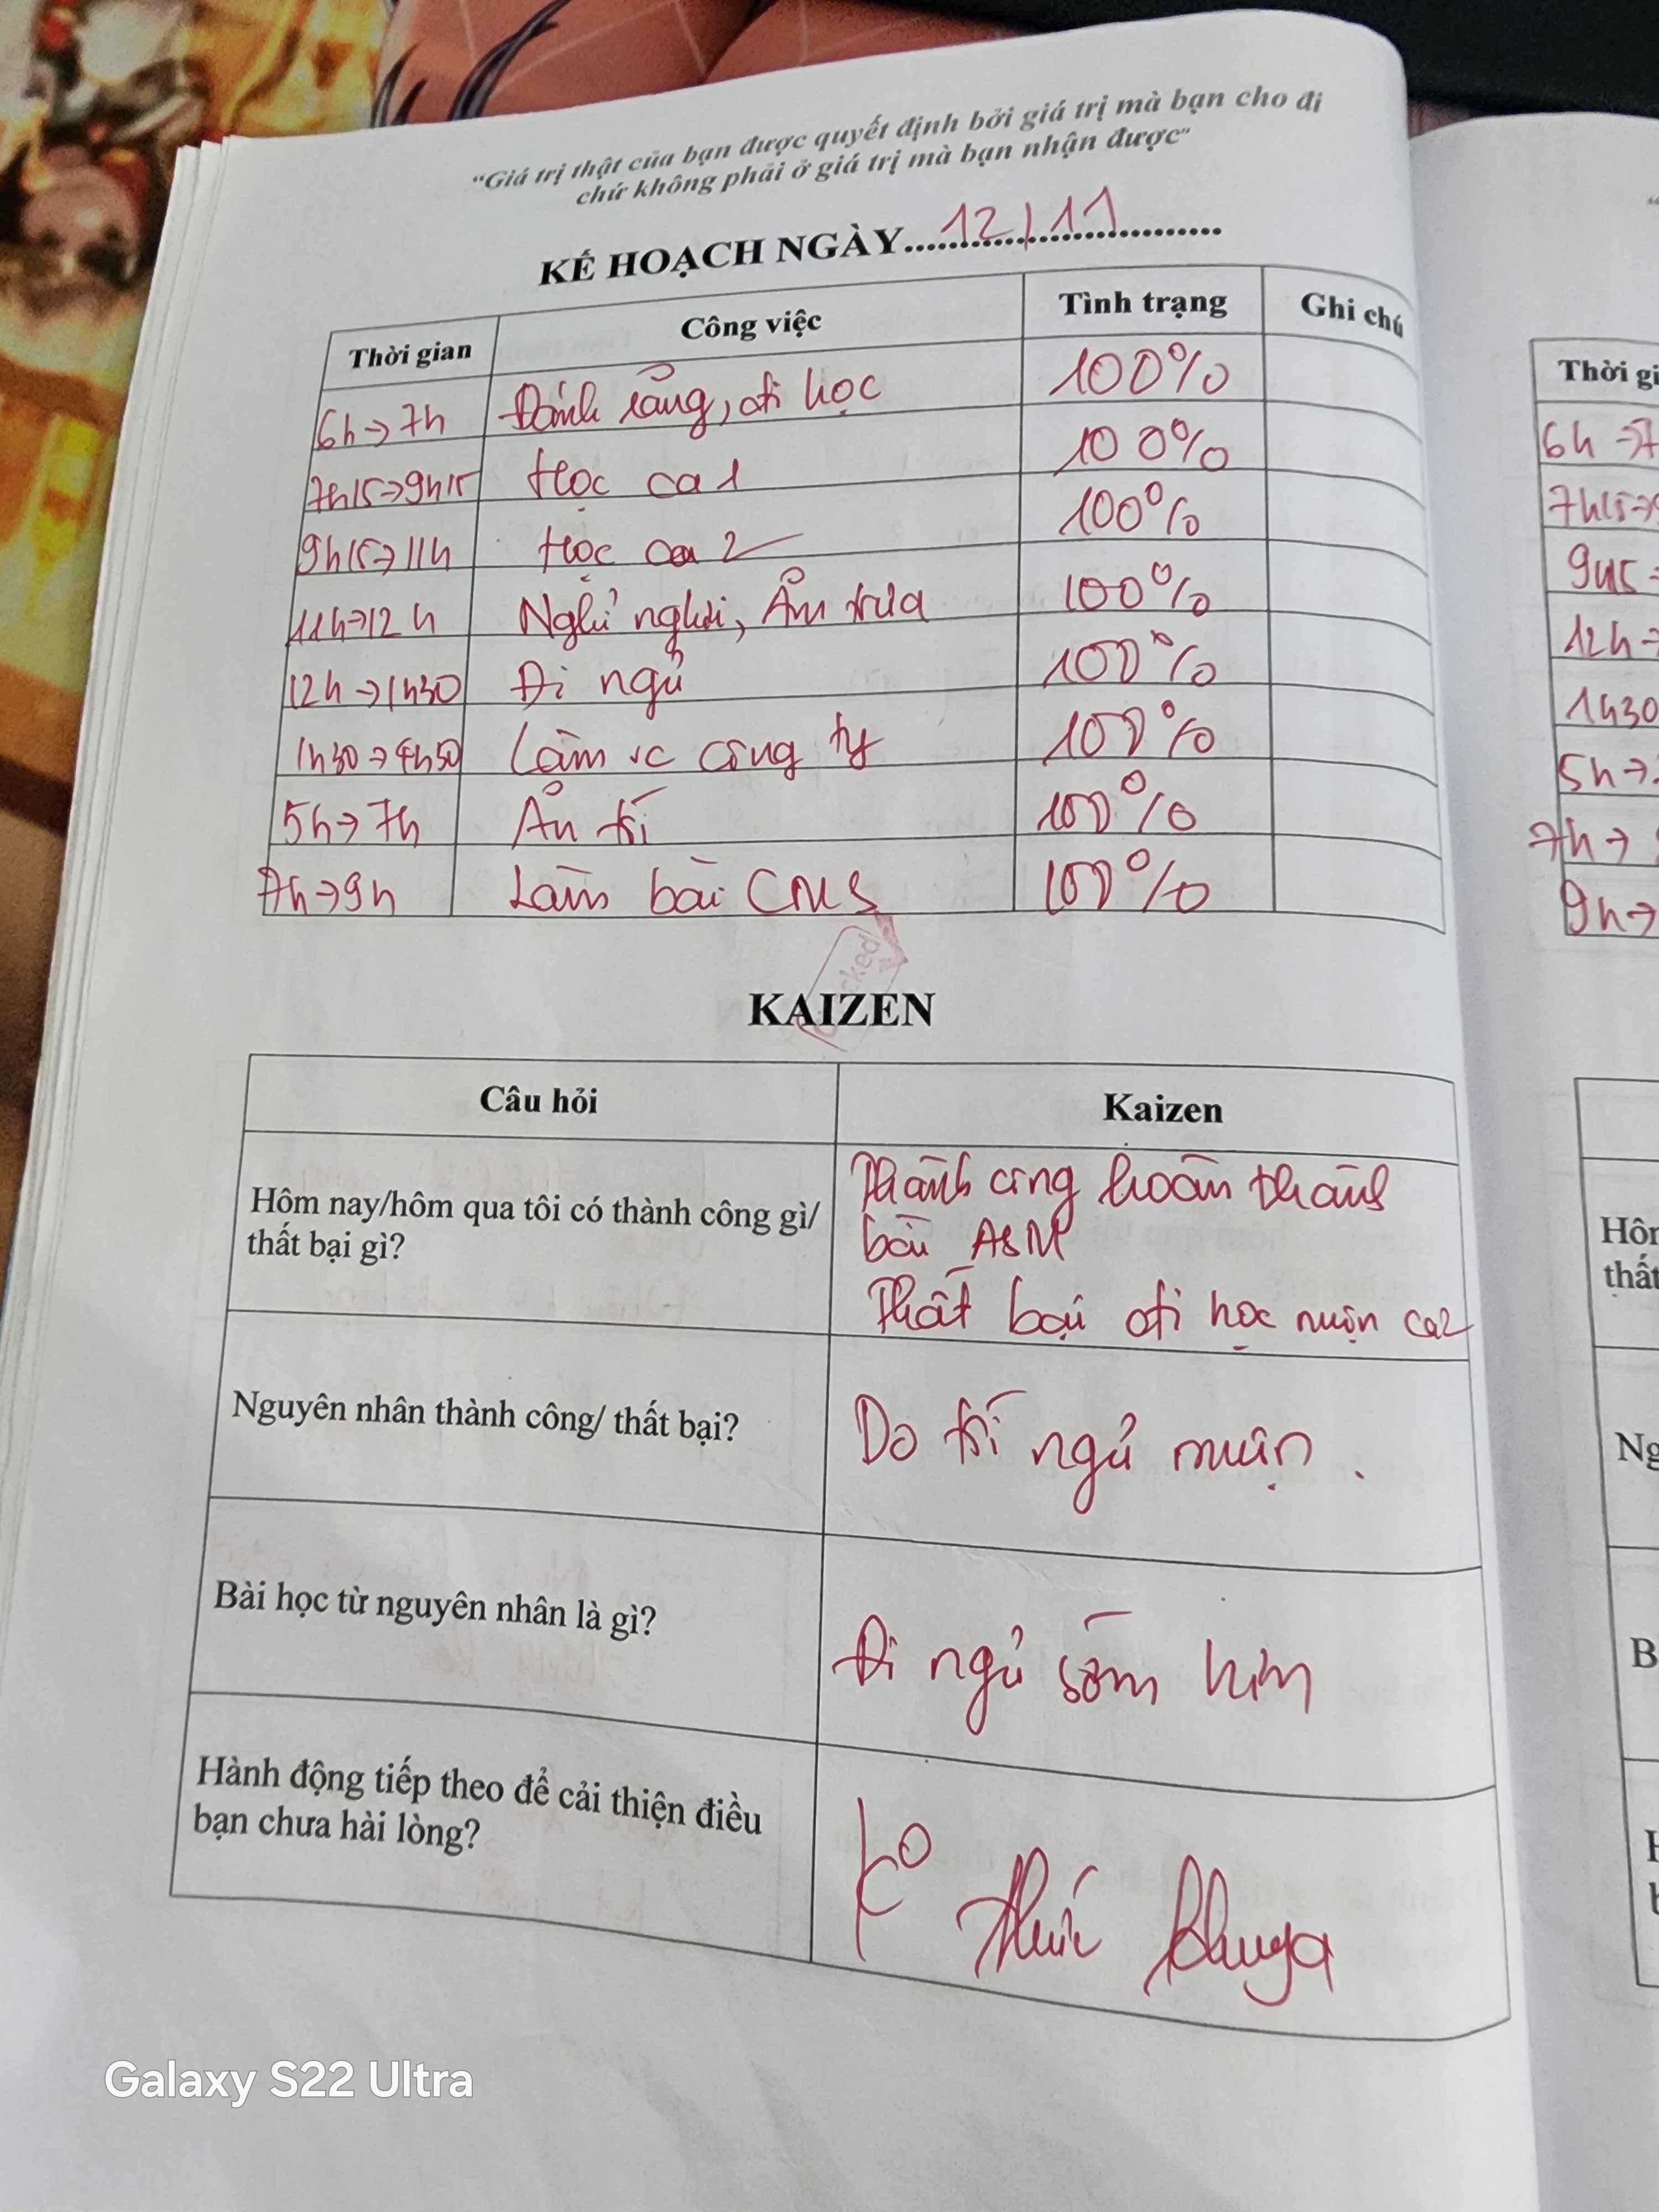 “Giá trị thật của bạn được quyết định bởi giá trị mà bạn cho đi
chứ không phải ở giá trị mà bạn nhận được”
KẾ HOẠCH NGÀY.....12/11.....
Thời gian Công việc Tình trạng Ghi chú
6h→7h Đánh răng, đi học 100%
7h15→9h15 Học ca 1 100%
9h15→11h Học ca 2 100%
11h→12h Nghỉ ngơi, Ăn trưa 100%
12h→1h30 Đi ngủ 100%
1h30→4h50 Làm vc công ty 100%
5h→7h Ăn tối 100%
7h→9h Làm bài CMS 100%
KAIZEN
Câu hỏi Kaizen
Hôm nay/hôm qua tôi có thành công gì/
thất bại gì?
Thành công hoàn thành
bài ASM
Thất bại đi học muộn ca2
Nguyên nhân thành công/ thất bại?
Do tối ngủ muộn.
Bài học từ nguyên nhân là gì?
Đi ngủ sớm hơn
Hành động tiếp theo để cải thiện điều
bạn chưa hài lòng?
Ko thức khuya
Thời gi
6h→7
7h15→
9h15
12h→
1h30
5h→
7h→
9h→
Hôn
thất
Ng
B
Galaxy S22 Ultra